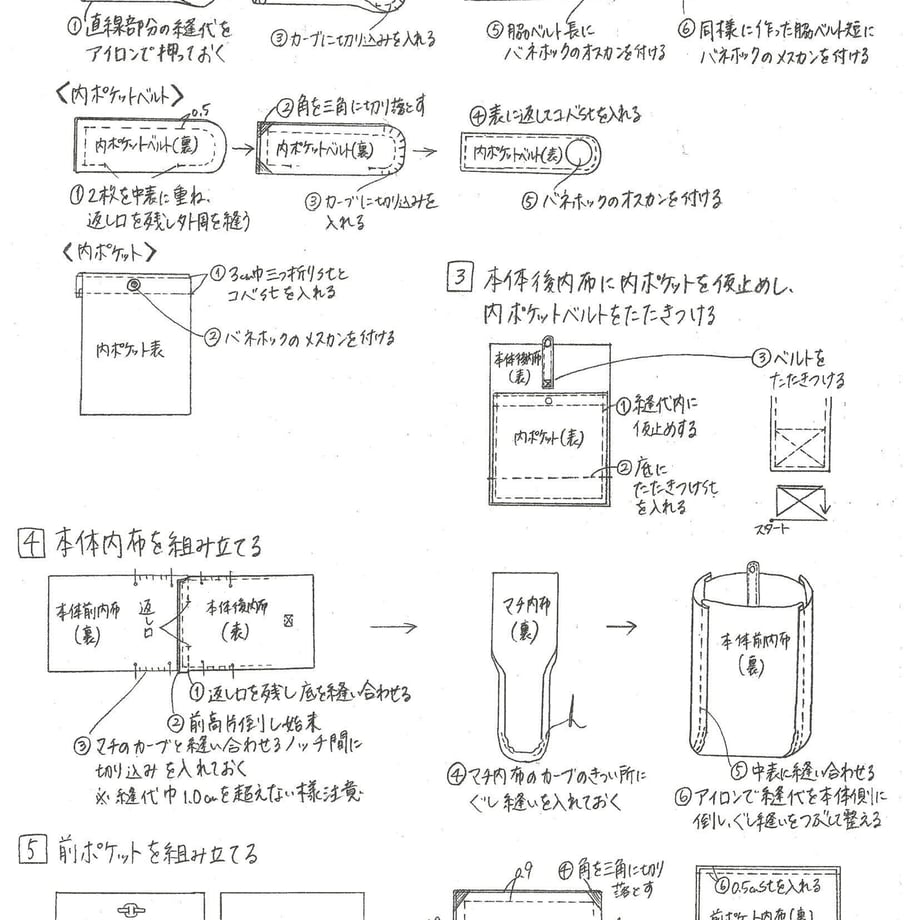 ①直線部分の縫代を
アイロンで押っておく
③カーブに切り込みを入れる
⑤脇ベルト長に
バネホックのオスカンを付ける
⑥同様に作った脇ベルト短に
バネホックのメスカンを付ける
〈内ポケットベルト〉
0.5
内ポケットベルト(裏)
①2枚を中表に重ね、
返し口を残し外周を縫う
②角を三角に切り落とす
内ポケットベルト(裏)
③カーブに切り込みを
入れる
④表に返してコバstを入れる
内ポケットベルト(表)
⑤バネホックのオスカンを付ける
〈内ポケット〉
①3cm巾三つ折りstと
コバstを入れる
②バネホックのメスカンを付ける
内ポケット表
3 本体後内布に内ポケットを仮止めし、
内ポケットベルトをたたきつける
本体後内布
(表)
内ポケット(表)
①縫代内に
仮止めする
②底に
たたきつけst
を入れる
③ベルトを
たたきつける
スタート
4 本体内布を組み立てる
本体前内布
(裏)
返し口
本体後内布
(表)
①返し口を残し底を縫い合わせる
②前高片倒し始末
③マチのカーブと縫い合わせるノッチ間に
切り込みを入れておく
※縫代巾1.0cmを超えない様注意
マチ内布
(裏)
④マチ内布のカーブのきつい所に
ぐし縫いを入れておく
本体前内布
(裏)
⑤中表に縫い合わせる
⑥アイロンで縫代を本体側に
倒し、ぐし縫いをつぶして整える
5 前ポケットを組み立てる
0.9
④角を三角に切り
落とす
⑥0.5cmstを入れる
前ポケット内布(裏)